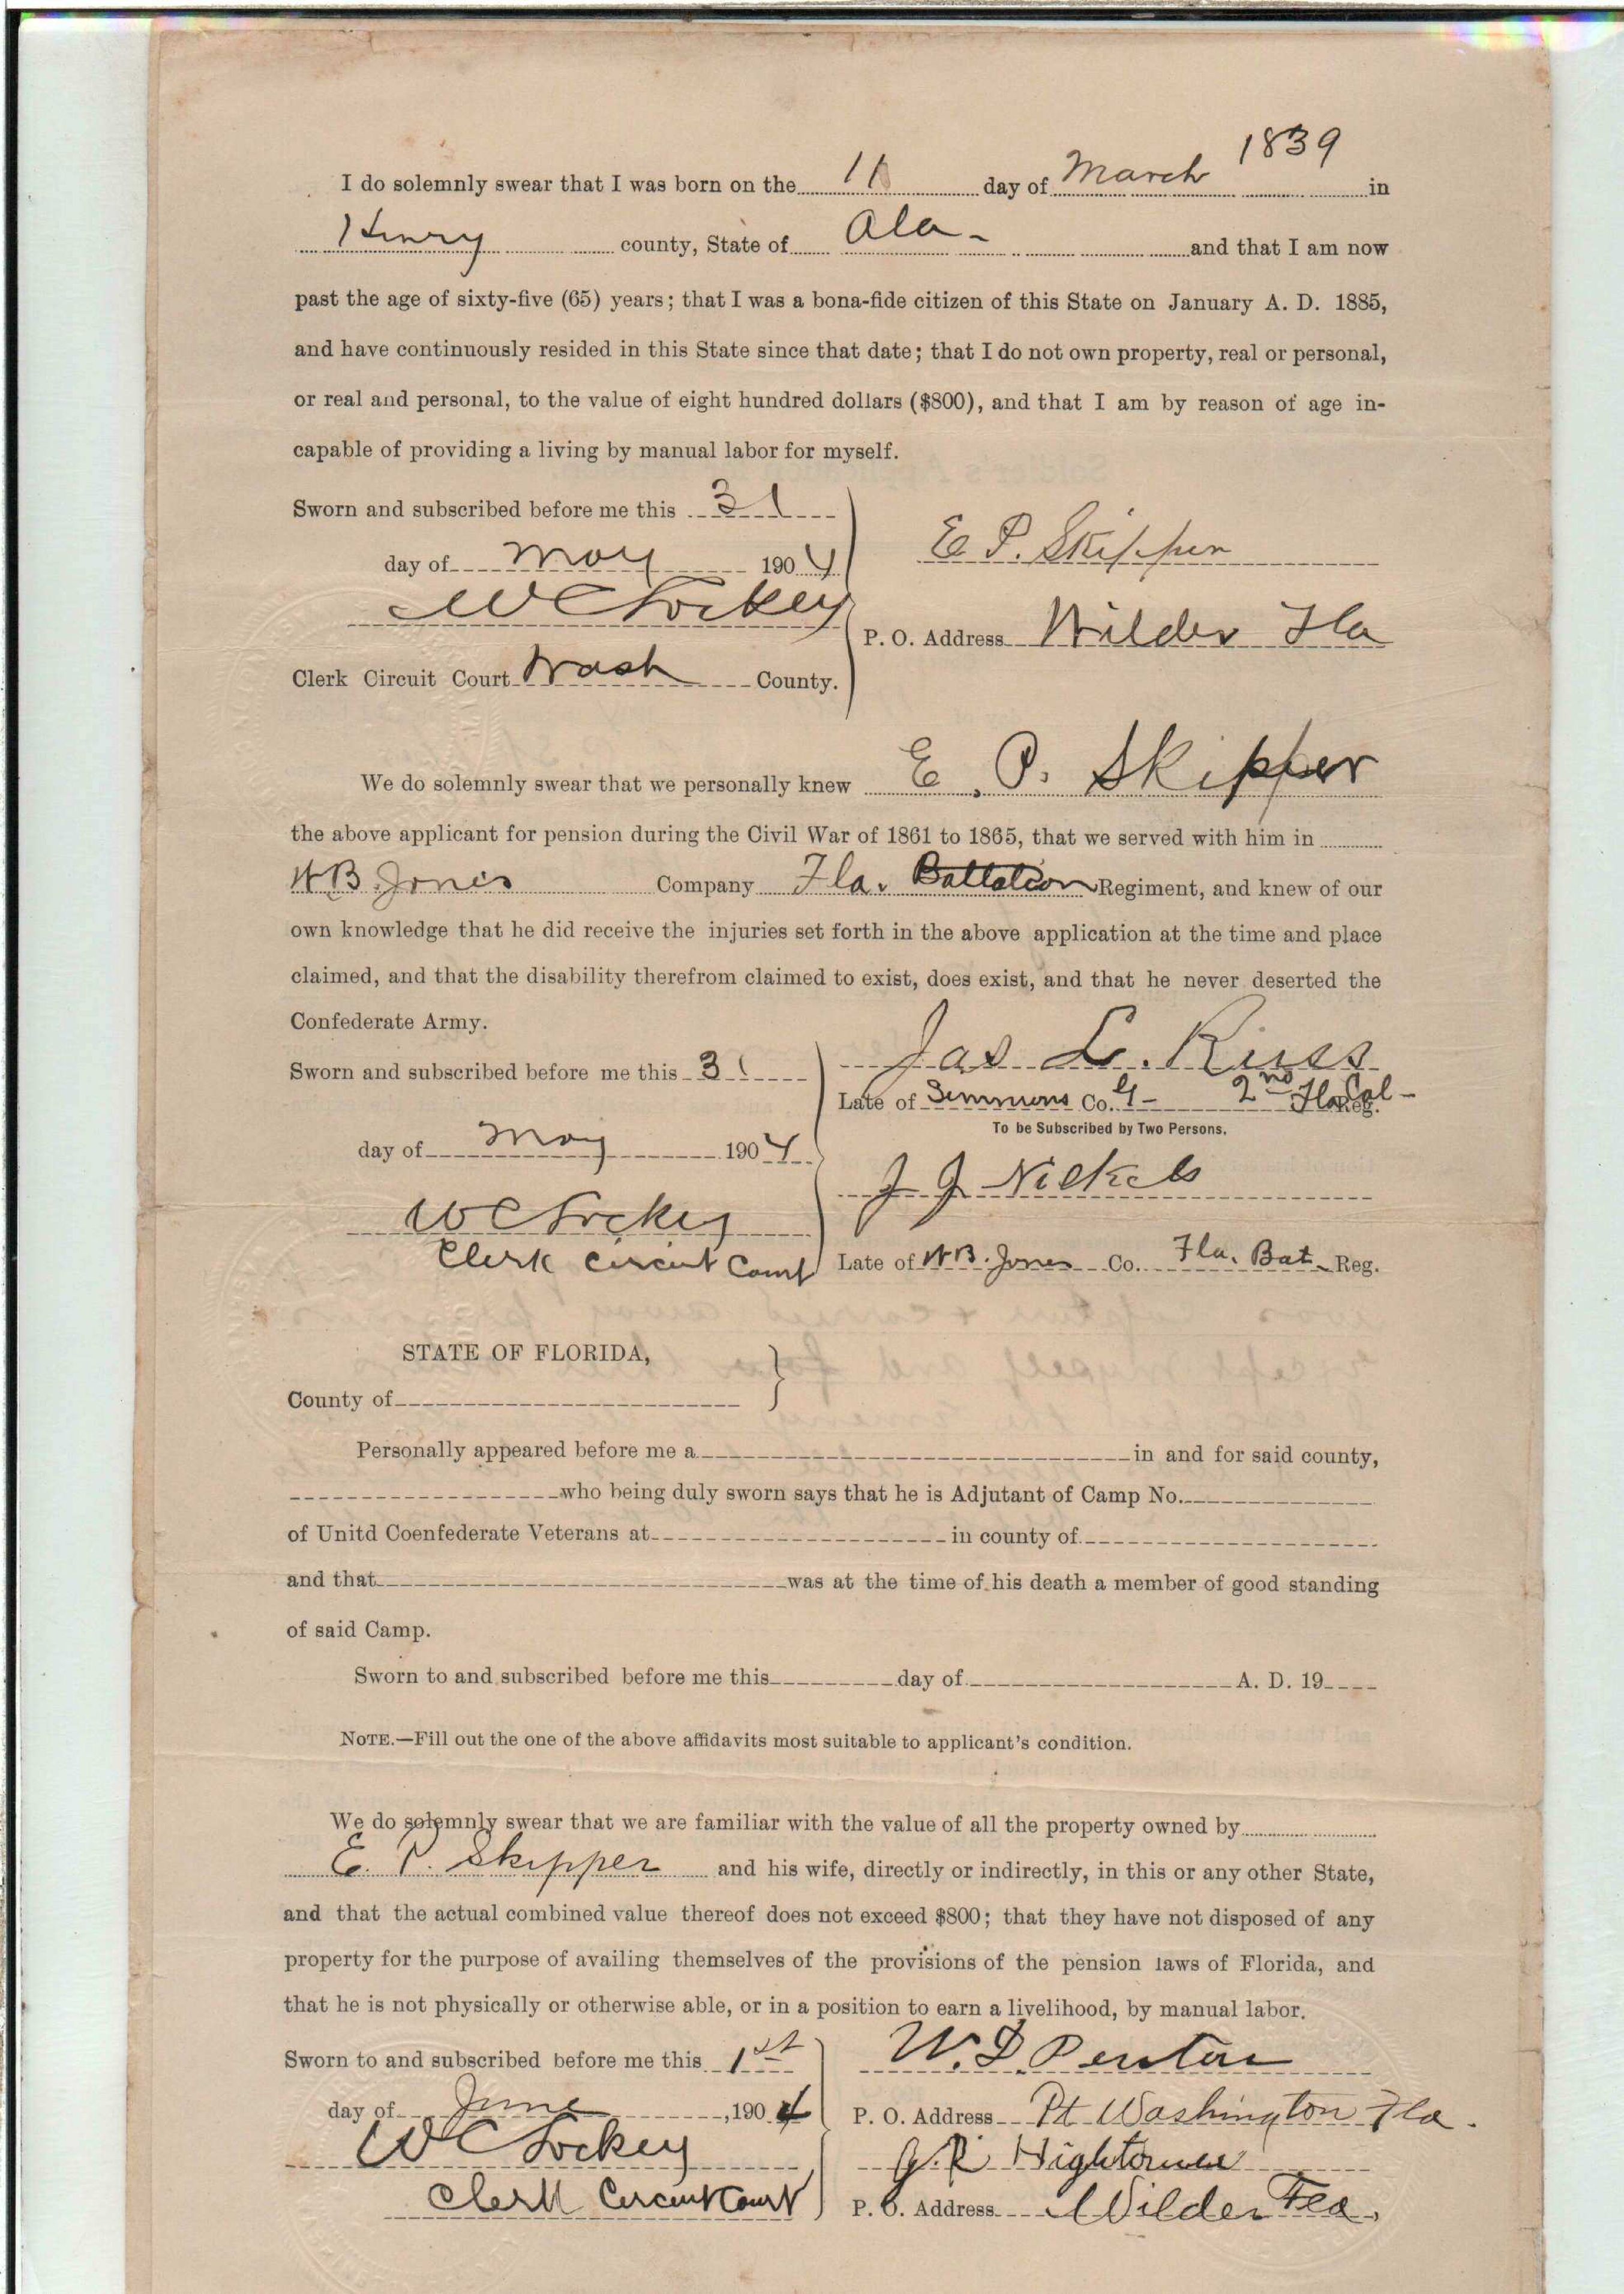 I do solemnly swear that I was born on the 11 day of March 1839 in
Henry county, State of Ala- and that I am now
past the age of sixty-five (65) years; that I was a bona-fide citizen of this State on January A. D. 1885,
and have continuously resided in this State since that date; that I do not own property, real or personal,
or real and personal, to the value of eight hundred dollars ($800), and that I am by reason of age in-
capable of providing a living by manual labor for myself.
Sworn and subscribed before me this 31
day of May 1904
E P. Skipper
W C Lockey
P. O. Address Wilder Fla
Clerk Circuit Court Wash County.
We do solemnly swear that we personally knew E. P. Skipper
the above applicant for pension during the Civil War of 1861 to 1865, that we served with him in
W B Jones Company Fla. Battalion Regiment, and knew of our
own knowledge that he did receive the injuries set forth in the above application at the time and place
claimed, and that the disability therefrom claimed to exist, does exist, and that he never deserted the
Confederate Army.
Jas L. Russ
Sworn and subscribed before me this 31
Late of Simmons Co. G- 2nd Fla Cal- Reg.
To be Subscribed by Two Persons.
day of May 1904
J J Nickels
W C Lockey
Clerk Circuit Court
Late of W B. Jones Co. Fla. Bat Reg.
STATE OF FLORIDA,
County of
Personally appeared before me a in and for said county,
who being duly sworn says that he is Adjutant of Camp No.
of Unitd Coenfederate Veterans at in county of
and that was at the time of his death a member of good standing
of said Camp.
Sworn to and subscribed before me this day of A. D. 19
NOTE.—Fill out the one of the above affidavits most suitable to applicant's condition.
We do solemnly swear that we are familiar with the value of all the property owned by
E. P. Skipper and his wife, directly or indirectly, in this or any other State,
and that the actual combined value thereof does not exceed $800; that they have not disposed of any
property for the purpose of availing themselves of the provisions of the pension laws of Florida, and
that he is not physically or otherwise able, or in a position to earn a livelihood, by manual labor.
Sworn to and subscribed before me this 1st
W. D. Penton
day of June, 1904
P. O. Address Pt Washington Fla.
W C Lockey
J. R Hightower
Clerk Circuit Court
P. O. Address Wilder Fla.